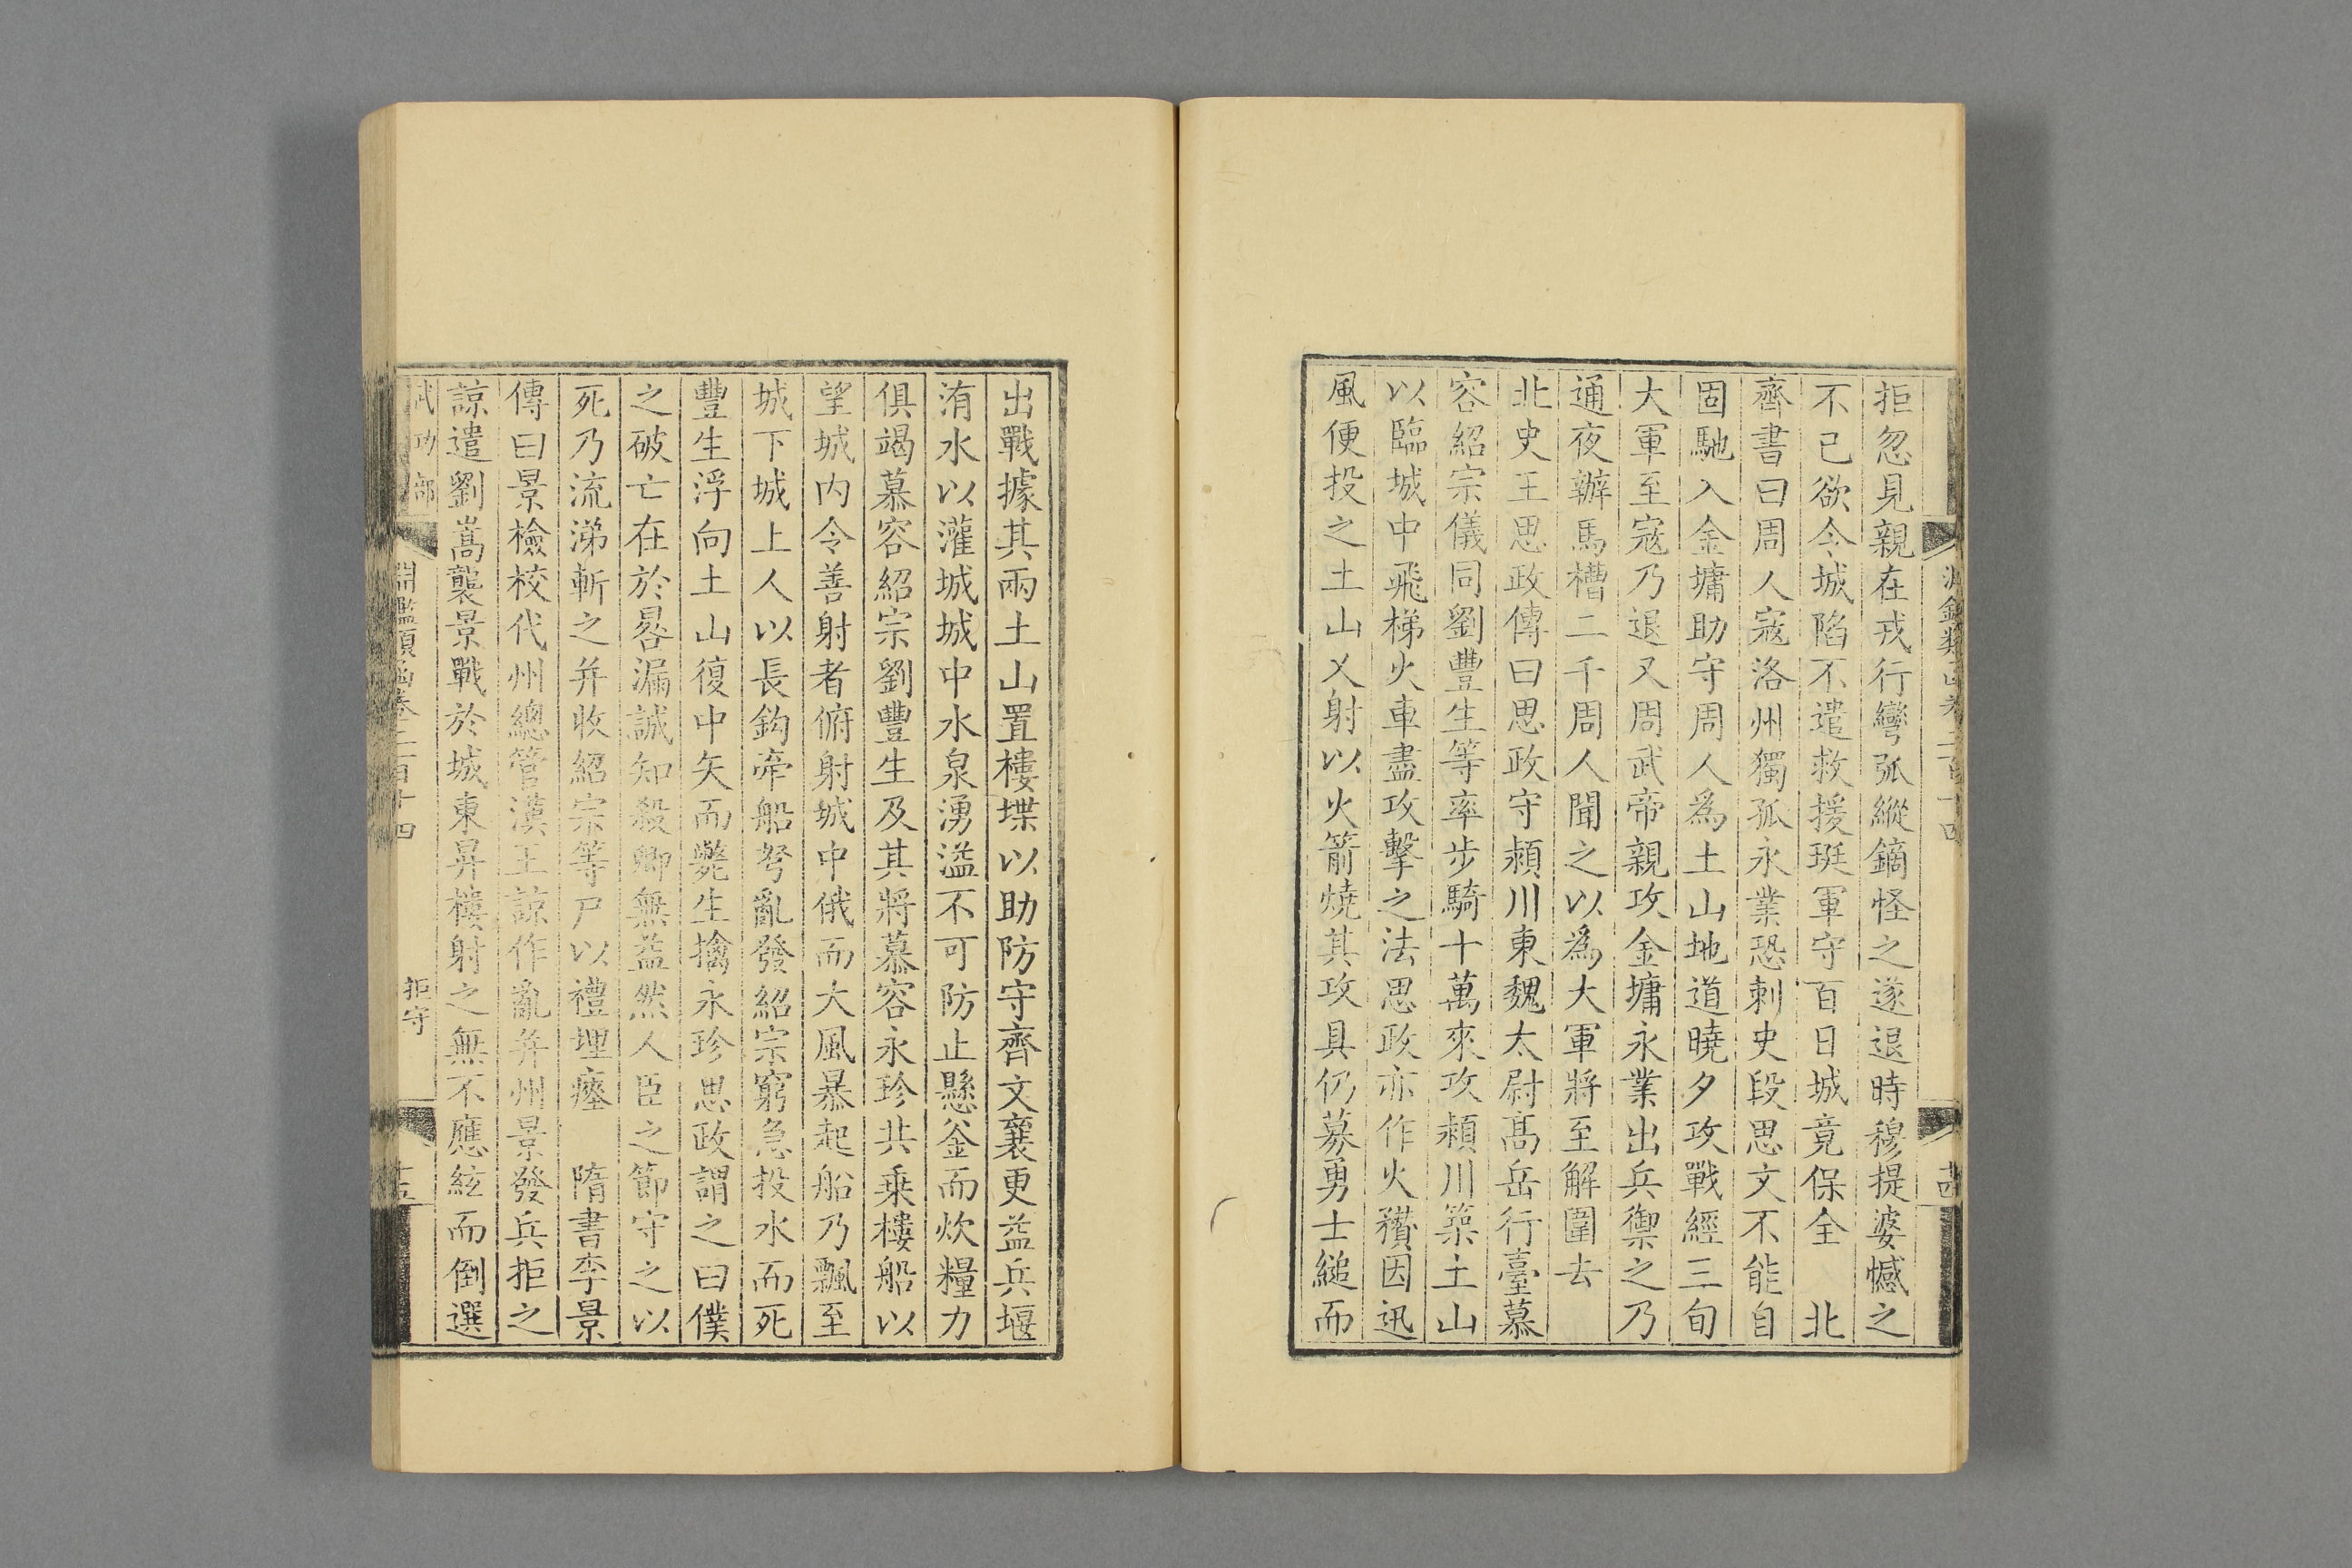 拒忽見親在戎行彎弧縱鏑怪之遂退時穆提婆憾之
不已欲令城陷不遣救援珽軍守百日城竟保全　北
齊書曰周人寇洛州獨孤永業恐刺史段思文不能自
固馳入金墉助守周人爲土山地道曉夕攻戰經三旬
大軍至寇乃退又周武帝親攻金墉永業出兵禦之乃
通夜辦馬槽二千周人聞之以爲大軍將至解圍去
北史王思政傳曰思政守潁川東魏太尉高岳行臺慕
容紹宗儀同劉豐生等率步騎十萬來攻潁川築土山
以臨城中飛梯火車盡攻擊之法思政亦作火䂎因迅
風便投之土山又射以火箭燒其攻具仍募勇士縋而
出戰據其兩土山置樓堞以助防守齊文襄更益兵堰
洧水以灌城城中水泉湧溢不可防止懸釜而炊糧力
俱竭慕容紹宗劉豐生及其將慕容永珍共乗樓船以
望城内令善射者俯射城中俄而大風暴起船乃飄至
城下城上人以長鈎牽船弩亂發紹宗窮急投水而死
豐生浮向土山復中矢而斃生擒永珍思政謂之曰僕
之破亡在於晷漏誠知殺卿無益然人臣之節守之以
死乃流涕斬之并收紹宗等尸以禮埋瘞　隋書李景
傳曰景檢校代州總管漢王諒作亂并州景發兵拒之
諒遣劉嵩襲景戰於城東昇樓射之無不應絃而倒選
武功部
淵鑑類函卷二百十四
拒守